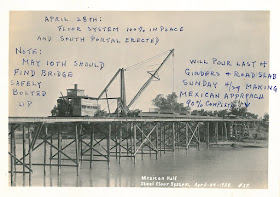 APRIL 28TH:
FLOOR SYSTEM 100% IN PLACE
AND SOUTH PORTAL ERECTED
NOTE:
MAY 10TH SHOULD
FIND BRIDGE
SAFELY
BOLTED
UP
WILL POUR LAST OF
GINDERS + ROAD SLAB
SUNDAY 4/29 MAKING
MEXICAN APPROACH
90% COMPLETE
Mexican Half
Steel Floor System, April-24-1928.